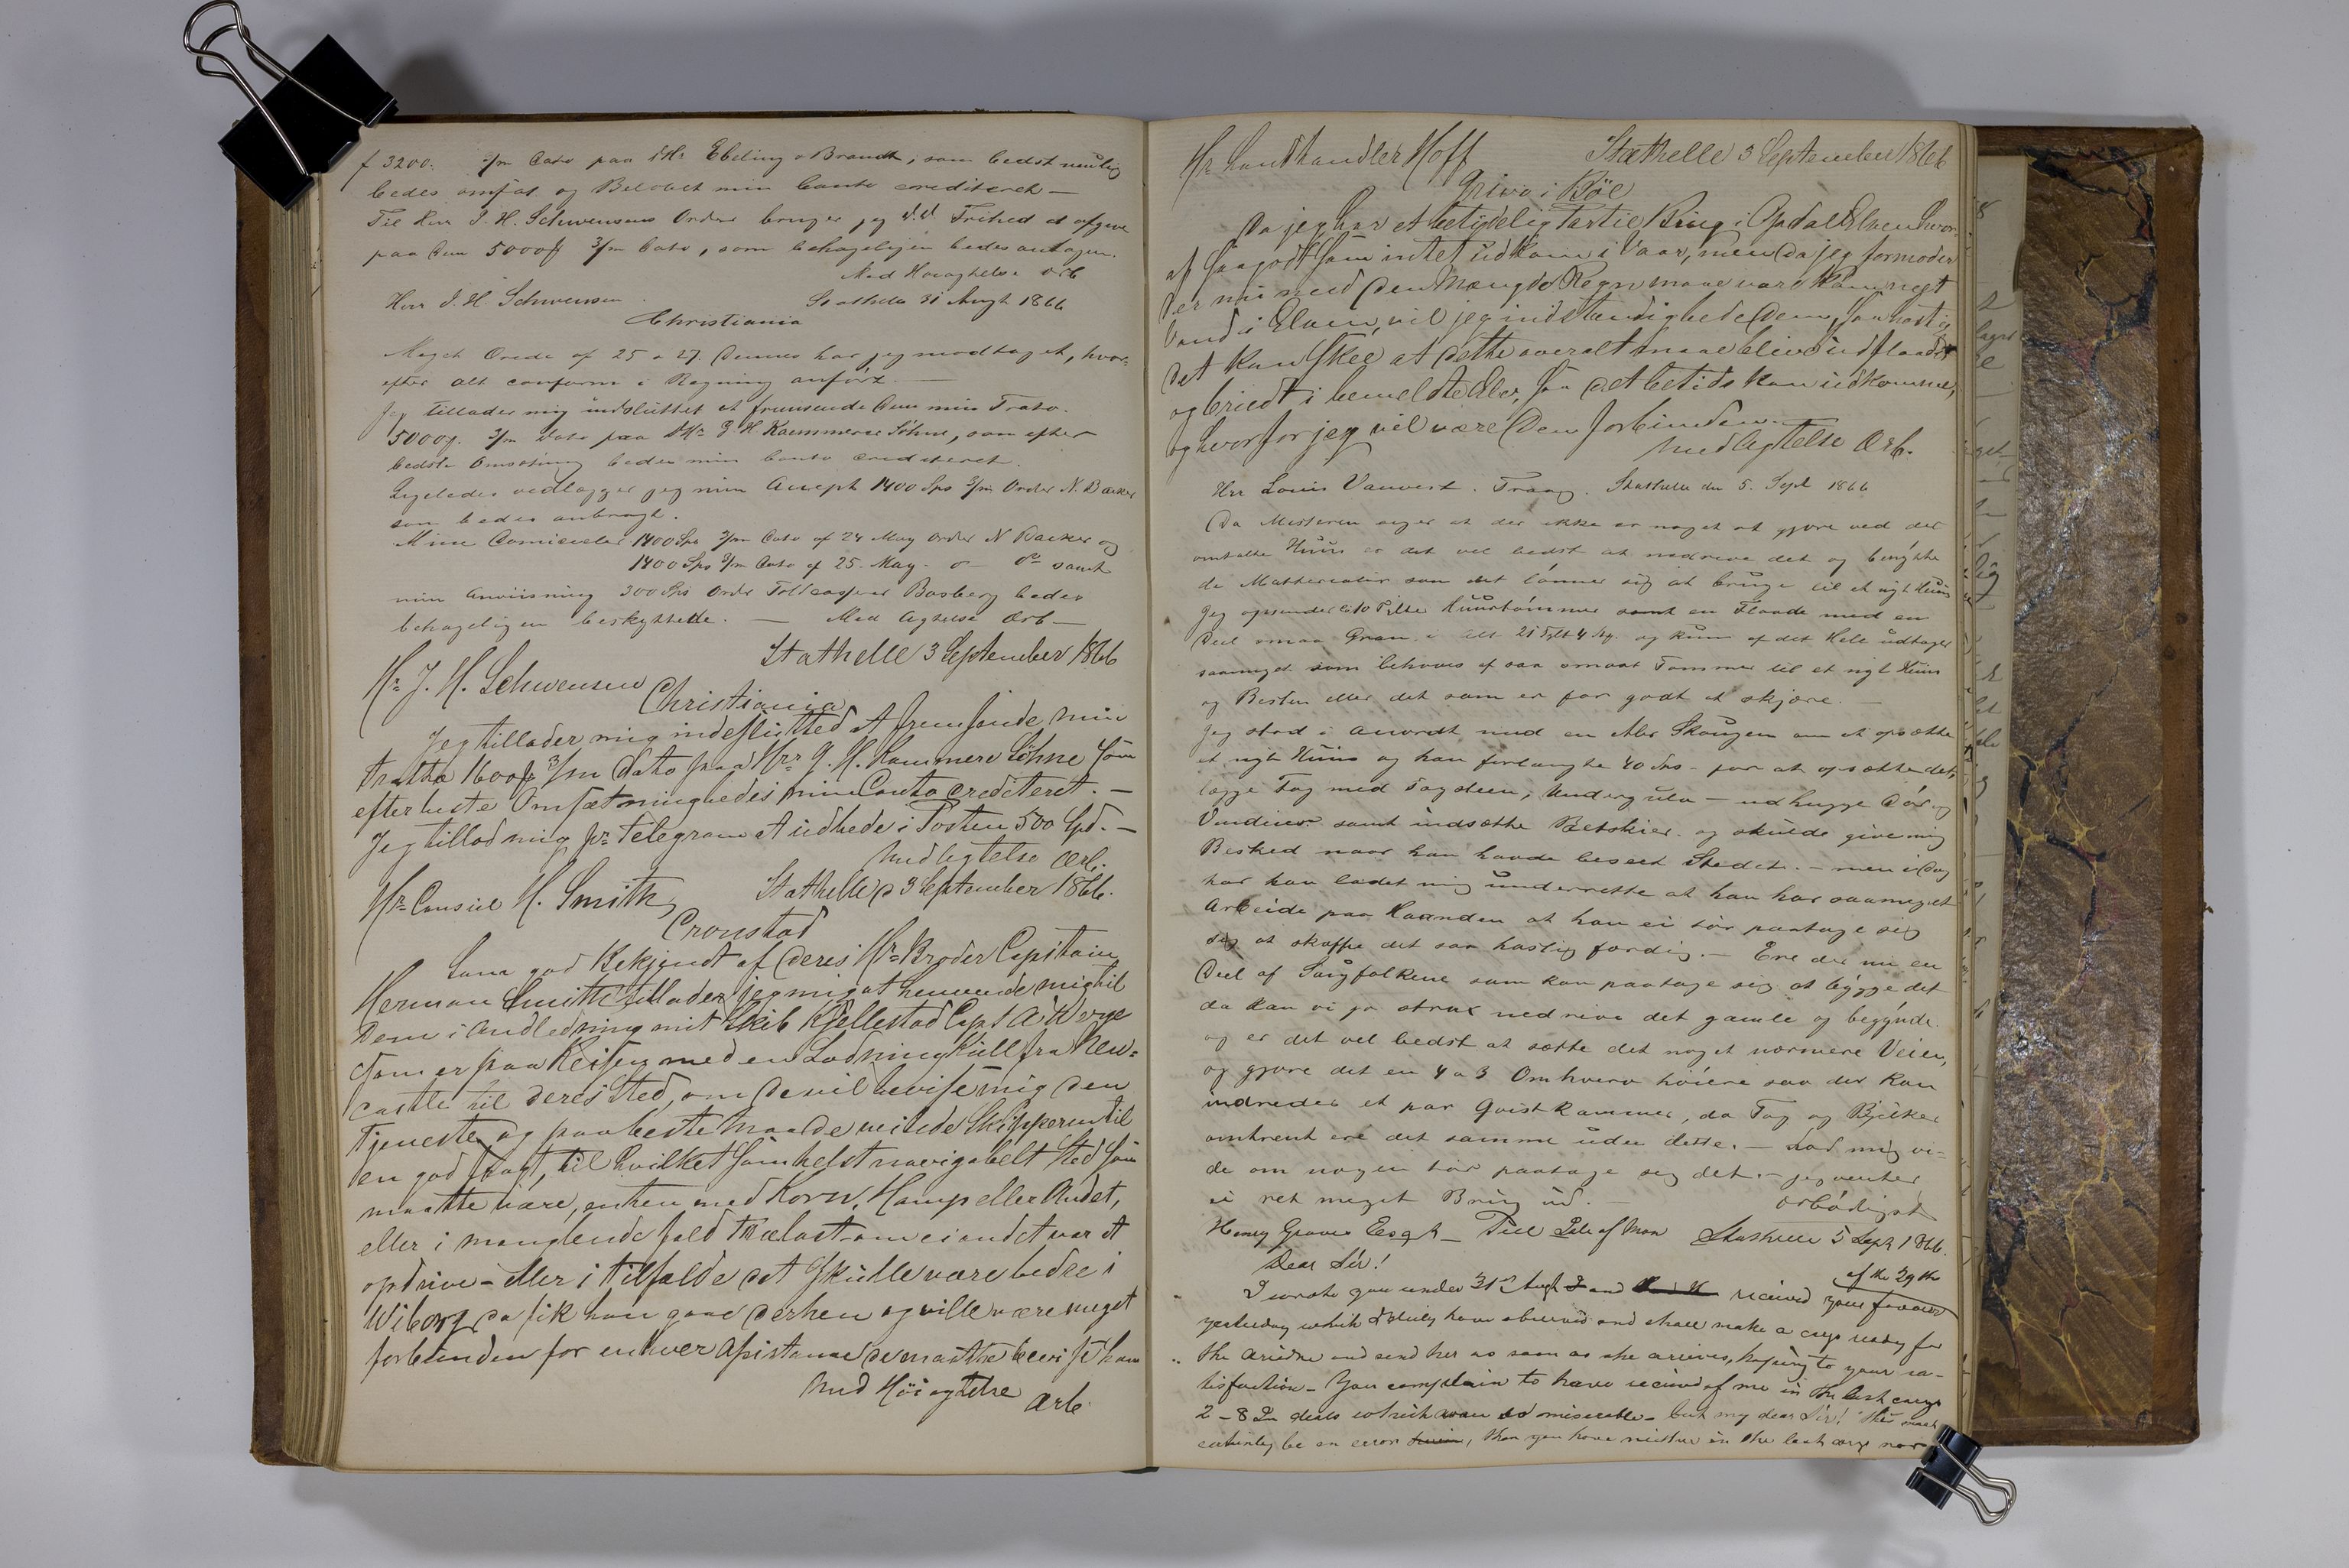 f 3200. 3/m Dato paa d'Hr Ebeling & Brandt, som bedst mulig
bedes omsat og Beløbet min Conto crediteret —
Til Herr J. H. Schwensens Ordre bruger jeg d.d. Frihed at afgive
paa Dem 5000f 3/m Dato, som behageligen bedes antagen.
Med Høiagtelse ærb
Herr J. H. Schwensen Stathelle 31 Augt 1866
Christiania
Meget Ærede af 25 & 27 Dennes har jeg modtaget, hvor-
efter alt conform i Regning anført. —
Jeg tillader mig indsluttet at fremsende Dem min Tratta
5000f. 3/m Dato paa d'Hr G. H. Kaemmerer Söhne, som efter
bedste Omsætning bedes min Conto crediteret.
Ligeledes vedlægger jeg min Accept 1400 Sps 3/m Ordre N. Backer
som bedes anbragt.
Mine Domicieler 1400 Sps 3/m Dato af 24 May Ordre N Backer og
1400 Sps 3/m Dato af 25. May — do samt
min Anviisning 300 Sps Ordre Toldcasserer Basberg bedes
behageligen beskyttede. — Med Agtelse Ærb —
Stathelle 3 September 1866
Hr J. H. Schwensen
Christiania
Jeg tillader mig indeslutted at fremsende min
Tratta 1600f 3/m Dato paa Hrr G. H. Kammerer Söhne som
efter beste Omsætning bedes min Conto crediteret. —
Jeg tillod mig pr Telegram at udbede i Posten 500 Spd. —
Med Agtelse Ærb.
Hr Consul H. Smith Stathelle 3 September 1866.
Cronstad
Som god Bekjendt af Deres Hr Broder Capitain
Herman Smith tillader jeg mig at henvende mig til
Dem i Andledning mit Skib Kjellestad Capt A. Werge
som er paa Reisen med en Ladning Kull fra New-
castle til Deres Sted, om De vil bevise mig den
Tjeneste og paa beste Maade veilede Skipperen til
en god Fragt, til hvilket somhelst navigabelt Sted som
maatte være, enten med Korn, Hamp eller Andet,
eller i manglende fald Trælast om ei andet var at
opdrive – eller i Tilfælde det skulle være bedre i
Wiborg da fik han gaae derhen og ville være meget
forbunden for enhver Assistance De maatte bevise ham
Med Høiagtelse Ærb
Hr Landhandler Hoff Stathelle 3 September 1866
Griva i Böe
Da jeg har et betydelig Partie Bring i Opdal Elven hvor-
af saagodt som intet udkom i Vaar, men da jeg formoder
der nu med den Mængde Regn maae være kommet
Vand i Elven, vil jeg indstændig bede Dem, saa hastig
det kan skee at dette overalt maae blive udflaadet
og briedt i bemeldte Elv, saa det betids kan udkomme,
og hvorfor jeg vil være Dem forbunden
Med Agtelse Ærb.
Herr Louis Vauvert. Traag. Stathelle den 5. Sept 1866
Da Mesteren siger at der ikke er noget at gjøre ved det
omtalte Huus er det vel bedst at nedrive det og benytte
de Matherialier som det lönner sig at bruge til et nyt Huus
Jeg opsender Ca 10 Tylter Huustømmer samt en Flaade med en
Deel smaa Gran i alt 21 Tylt 4 Stk. og kun af det Hele udtages
saameget som behøves af saa smaat Tømmer til et nyt Huus
og Resten eller det som er for godt at skjære. —
Jeg stod i Accordt med en Abr Skougen om at opsætte
et nyt Huus og han forlangte 40 Sps – for at opsætte det,
lægge Tag med Tagsteen, Undergulv – udhugge Dör og
Vinduer samt indsætte Betskier og skulde give mig
Besked naar han havde beseet Stedet. – men i Dag
har han ladet mig underrette at han har saameget
Arbeide paa Haanden at han ei tör paatage sig
sig at skaffe det saa hastig færdig. – Ere der nu en
Deel af Saugfolkene som kan paatage sig at bygge det
da kan vi jo strax nedrive det gamle og begynde.
og er det vel bedst at sætte det noget nærmere Veien,
og gjøre det en 4 a 3 Omhvarv høiere saa der kan
indredes et par Qvistkammer, da Tag og Bjelker
omtrent ere det samme uden dette. – Lad mig vi-
de om nogen tör paatage sig det. – jeg venter
ei ret meget Bring ud. – ærbödigst
Henry Graves Esqr — Peel Isle of Man Stathelle 5 Sept 1866.
Dear Sir! of the 29th
I wrote you under 31st Augt and received your favour
yesterday which I duly have observed and shall make a cargo ready for
the Ariadne and send her as soon as she arrives, hoping to your sa-
tisfaction – You complain to have received of me in the last cargo
2 – 8 In deals which was so miserable – but my dear Sir! this must
certainly be an error, then you have neither in the last cargo nor